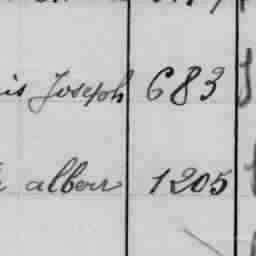 is Joseph 683
alber 1205